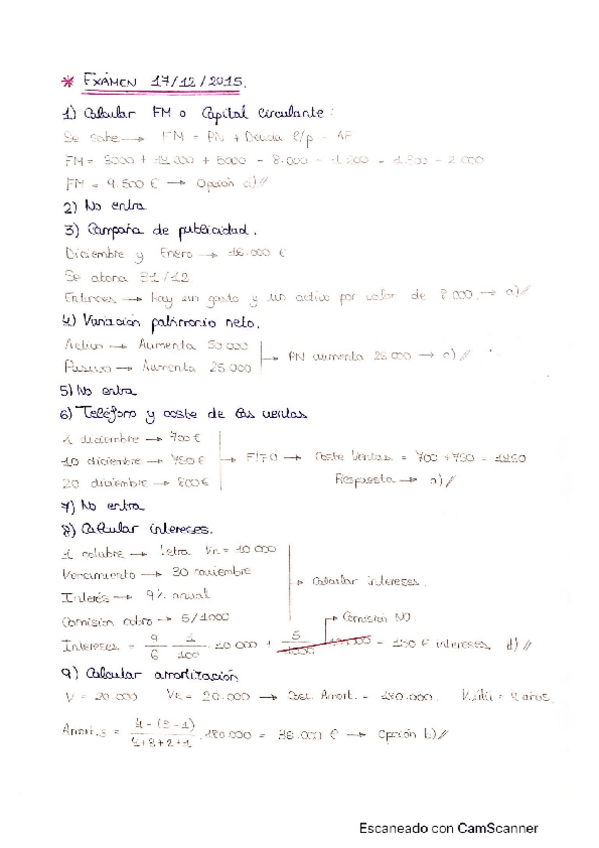 * EXÁMEN 17/12/2015.
1) Calcular FM o Capital circulante:
Se sabe → FM = PN + Deuda l/p - AF
FM = 3000 + + 5000 - 8.000 - - 1.800 - 2.000
FM = 9.500 € → Opción a)//
2) No entra
3) Campaña de publicidad.
Diciembre y Enero → 16.000 €
Se abona 31/12
Entonces → hay un gasto y un activo por valor de 8.000. → a)//
4) Variación patrimonio neto.
Activo → Aumenta 50.000
Pasivo → Aumenta 25.000 → PN aumenta 25.000 → c)//
5) No entra
6) Teléfono y coste de las ventas
1 diciembre → 700 €
10 diciembre → 750 € → FIFO → Coste Ventas = 700 + 750 = 1450
20 diciembre → 800 € Respuesta → a)//
7) No entra
8) Calcular intereses.
1 octubre → Letra = 10.000
Vencimiento → 30 noviembre → Calcular intereses.
Interés → 9% anual
Comisión cobro → 5/1000 → Comisión NO.
Intereses = 9/6 · 1/100 · 10.000 + 5/1000 = 150 € intereses. d)//
9) Calcular amortización
V = 20.000 = 20.000 → Amort. = 180.000. V.útil = 4 años.
Amort.3 = 4-(3-1)/4+3+2+1 · 180.000 = 36.000 € → Opción b)//
Escaneado con CamScanner